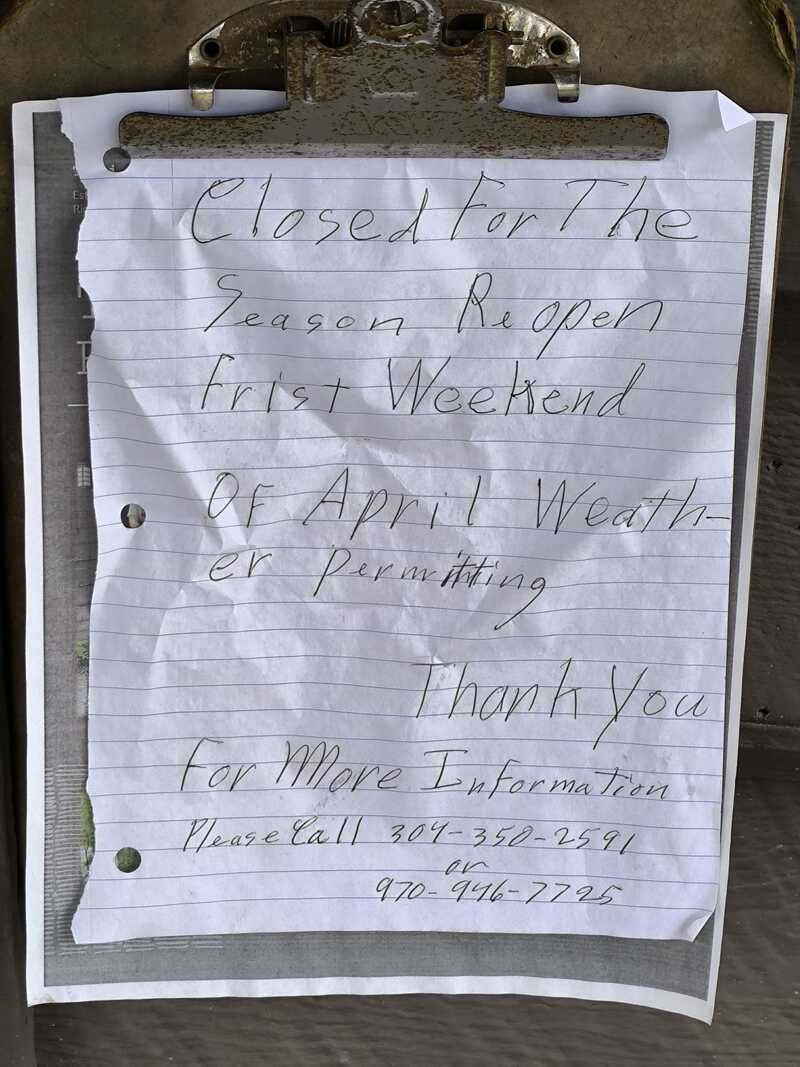 Closed For The
Season Reopen
Frist Weekend
OF April Weath-
er permitting
Thank You
For More Information
Please Call 304-350-2591
or
970-946-7725